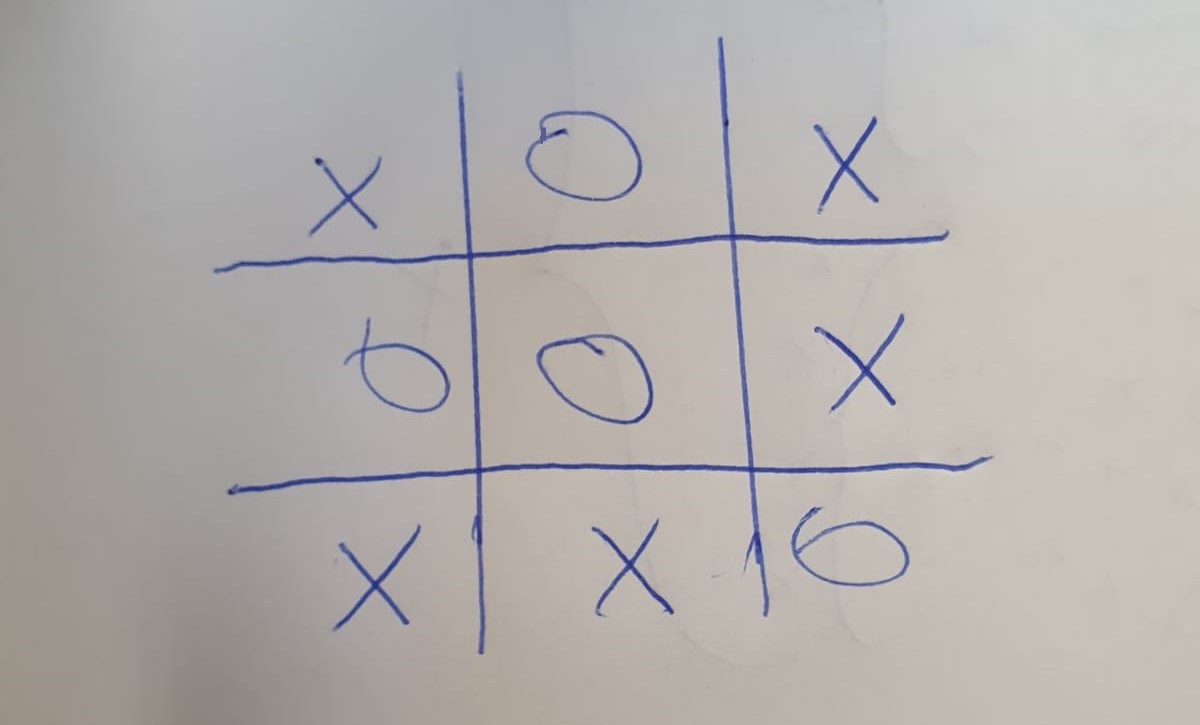 X O X
O O X
X X O